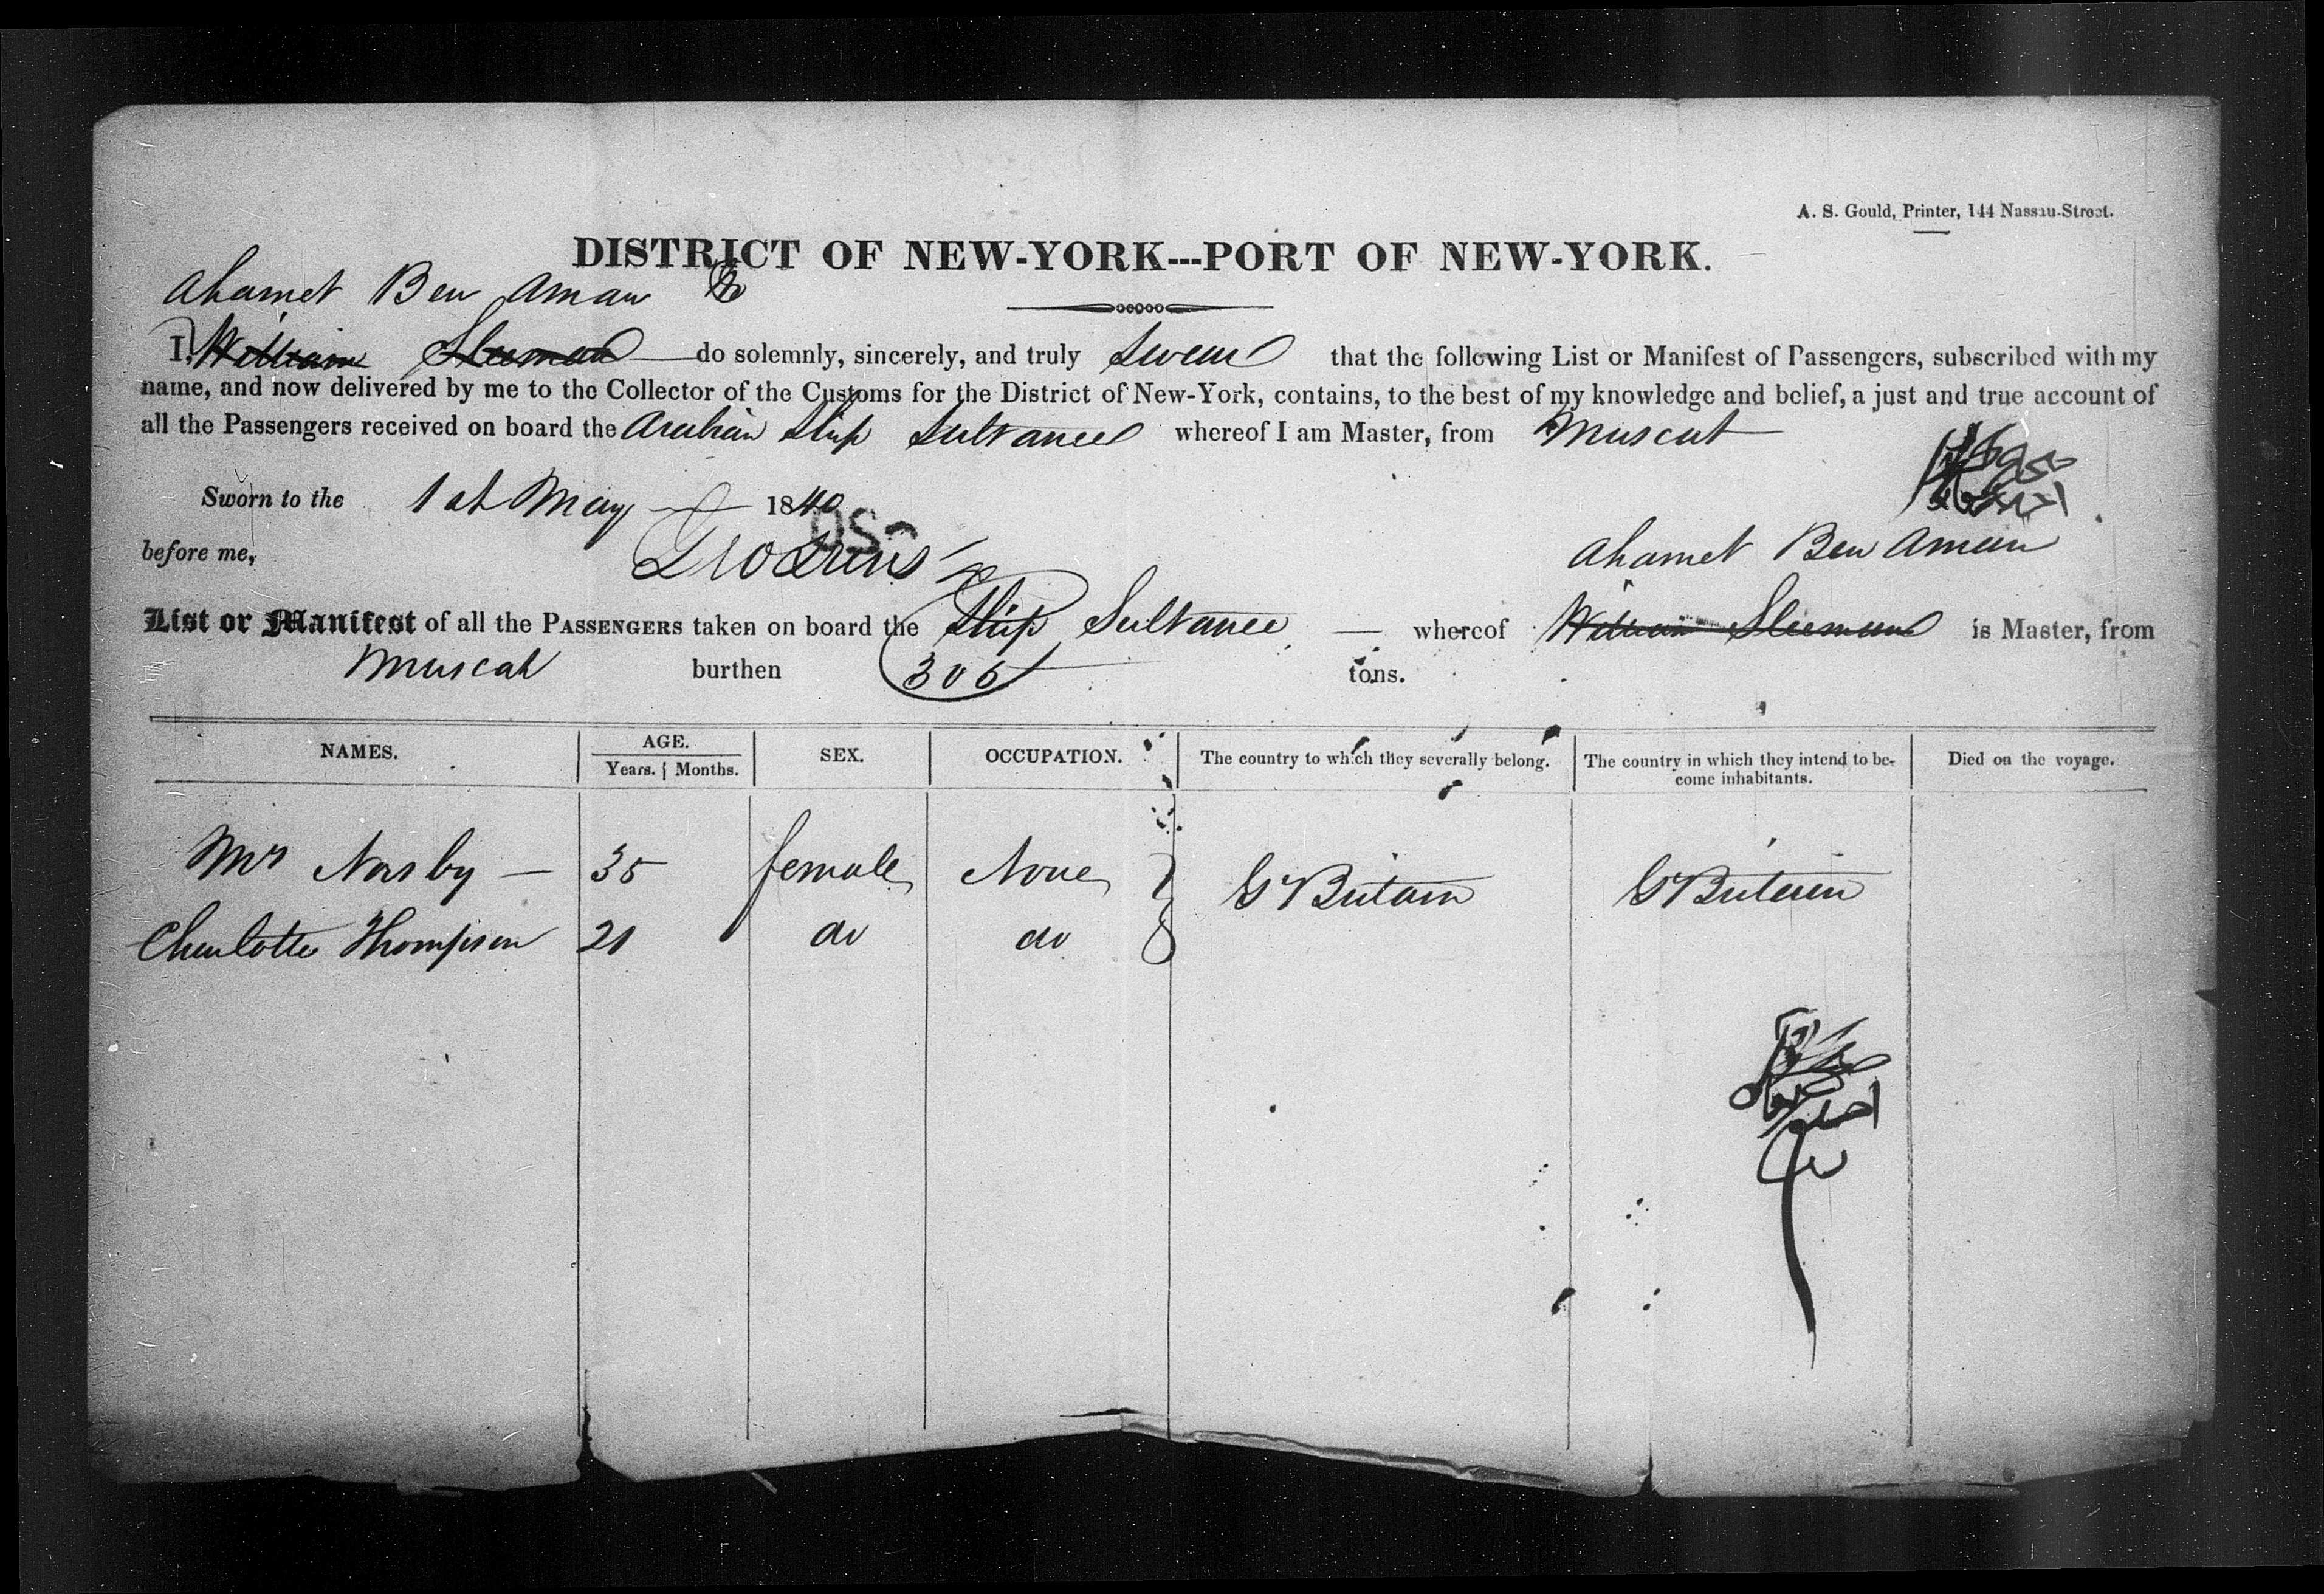 A. S. Gould, Printer, 144 Nassau-Street.
DISTRICT OF NEW-YORK---PORT OF NEW-YORK.
Ahamet Ben Aman
I, William Sleeman do solemnly, sincerely, and truly Swear that the following List or Manifest of Passengers, subscribed with my
name, and now delivered by me to the Collector of the Customs for the District of New-York, contains, to the best of my knowledge and belief, a just and true account of
all the Passengers received on board the Arabian Ship Sultanee whereof I am Master, from Muscat
Sworn to the 1st May 1840
before me,
Ahamet Ben Aman
List or Manifest of all the PASSENGERS taken on board the Ship Sultanee whereof William Sleeman is Master, from
Muscat burthen 305 tons.
NAMES. AGE. SEX. OCCUPATION. The country to which they severally belong. The country in which they intend to be- Died on the voyage.
Years. Months. come inhabitants.
Mrs Norsby — 35 female None Gt Britain Gt Britain
Charlotte Thompson 21 do do